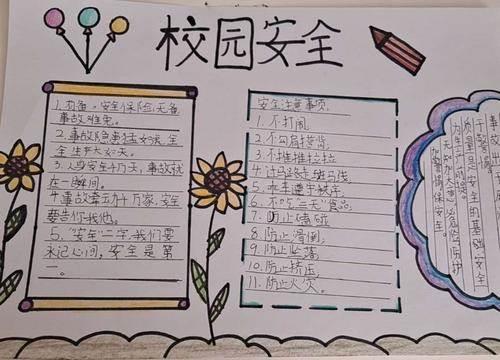 校园安全
1.有备,安全保险;无备
事故难免。
2.事故隐患猛如虎,安
全生产大如天。
3.人与安全千万天,事故就
在一瞬间。
4.事故牵动千万家,安全
要靠你我他。
5."安全"二字,我们要
永记心间,安全是第
一。
安全注意事项:
1.不打闹
2.不勾肩搭背
3.不推推拉拉
4.过马路走斑马线
5.乘车遵守秩序
6.不吃"三无"食品
7.防止磕碰
8.防止滑倒
9.防止坠落
10.防止挤压
11.防止火灾。
质量是安全的基础,安全